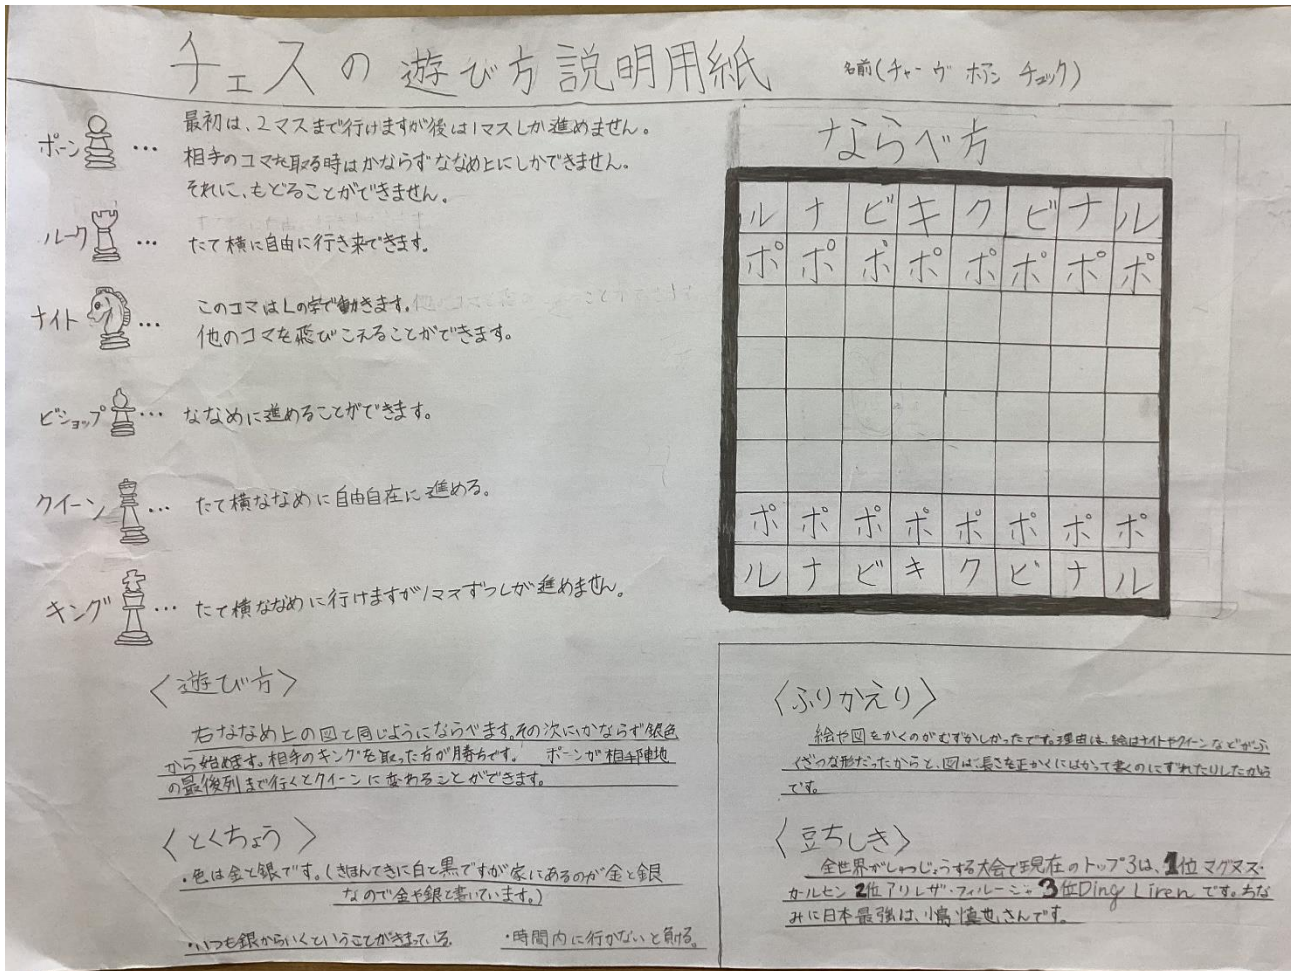 チェスの遊び方説明用紙
名前(チャーヴ ホアン チュック)
ポーン … 最初は、2マスまで行けますが後は1マスしか進めません。
相手のコマを取る時はかならずななめ上にしかできません。
それに、もどることができません。
ルーク … たて横に自由に行き来できます。
ナイト … このコマはLの字で動きます。
他のコマを飛びこえることができます。
ビショップ … ななめに進めることができます。
クイーン … たて横ななめに自由自在に進める。
キング … たて横ななめに行けますが1マスずつしか進めません。
ならべ方
ル ナ ビ キ ク ビ ナ ル
ポ ポ ポ ポ ポ ポ ポ ポ
ポ ポ ポ ポ ポ ポ ポ ポ
ル ナ ビ キ ク ビ ナ ル
〈遊び方〉
右ななめ上の図と同じようにならべます。その次にかならず銀色
から始めます。相手のキングを取った方が勝ちです。 ポーンが相手陣地
の最後列まで行くとクイーンに変わることができます。
〈とくちょう〉
・色は金と銀です。(きほんてきに白と黒ですが家にあるのが金と銀
なので金や銀と書いています。)
・いつも銀からいくということがきまっている。
・時間内に行かないと負ける。
〈ふりかえり〉
絵や図をかくのがむずかしかったです。理由は、絵はナイトやクイーンなどがふ
くざつな形だったからと、図は、長さを正かくにはかって書くのにずれたりしたから
です。
〈豆ちしき〉
全世界がしゅつじょうする大会で現在のトップ3は、1位マグヌス・
カールセン 2位アリレザ・フィルージャ 3位Ding Lirenです。ちな
みに日本最強は、小島慎也さんです。